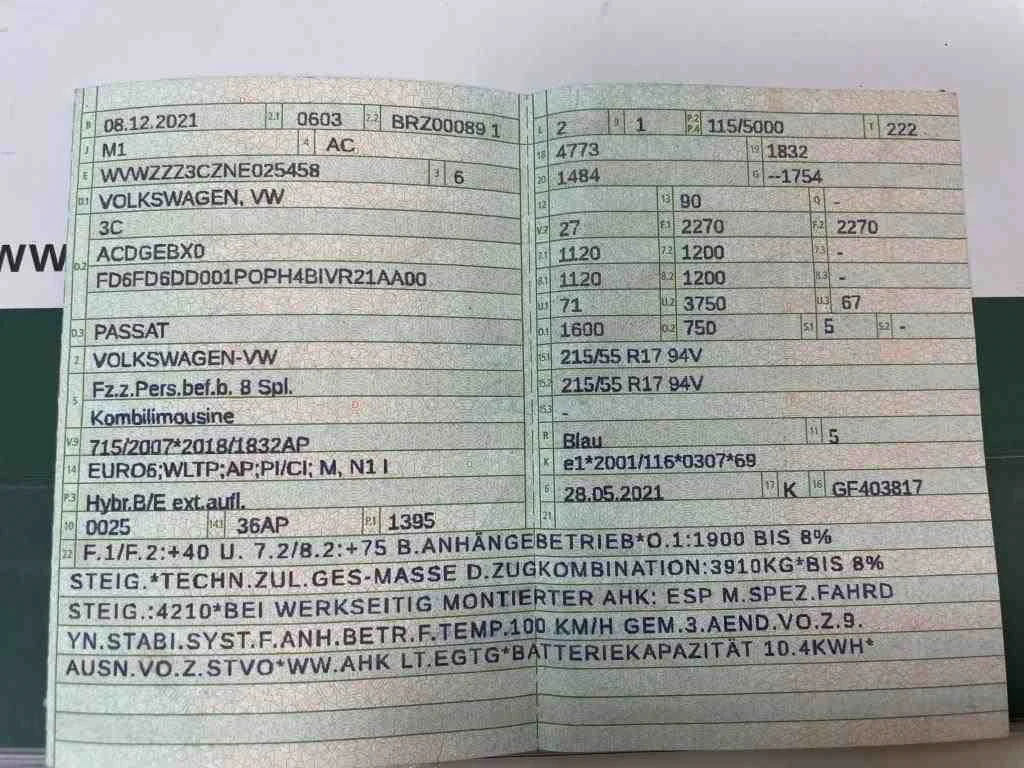 ww
B 08.12.2021 2.1 0603 2.2 BRZ00089 1
J M1 4 AC
E WVWZZZ3CZNE025458 3 6
D.1 VOLKSWAGEN, VW
3C
D.2 ACDGEBX0
FD6FD6DD001POPH4BIVR21AA00
D.3 PASSAT
2 VOLKSWAGEN-VW
5 Fz.z.Pers.bef.b. 8 Spl.
Kombilimousine
V.9 715/2007*2018/1832AP
14 EURO6;WLTP;AP;PI/CI; M, N1 I
P.3 Hybr.B/E ext.aufl.
10 0025 14.1 36AP P.1 1395
L 2 9 1 P.2 P.4 115/5000 T 222
18 4773 19 1832
20 1484 G --1754
12 13 90 Q -
V.7 27 F.1 2270 F.2 2270
7.1 1120 7.2 1200 7.3 -
8.1 1120 8.2 1200 8.3 -
U.1 71 U.2 3750 U.3 67
O.1 1600 O.2 750 S.1 5 S.2 -
15.1 215/55 R17 94V
15.2 215/55 R17 94V
15.3 -
R Blau 11 5
K e1*2001/116*0307*69
6 28.05.2021 17 K 16 GF403817
21
22 F.1/F.2:+40 U. 7.2/8.2:+75 B.ANHÄNGEBETRIEB*O.1:1900 BIS 8%
STEIG.*TECHN.ZUL.GES-MASSE D.ZUGKOMBINATION:3910KG*BIS 8%
STEIG.:4210*BEI WERKSEITIG MONTIERTER AHK: ESP M.SPEZ.FAHRD
YN.STABI.SYST.F.ANH.BETR.F.TEMP.100 KM/H GEM.3.AEND.VO.Z.9.
AUSN.VO.Z.STVO*WW.AHK LT.EGTG*BATTERIEKAPAZITÄT 10.4KWH*